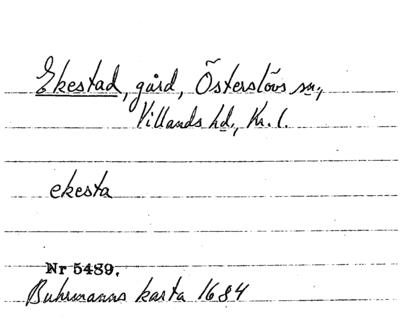 Ekestad, gård, Österslövs sn.,
Villands hd., Kr. l.
ekesta
Nr 5489.
Buhrmanns karta 1684